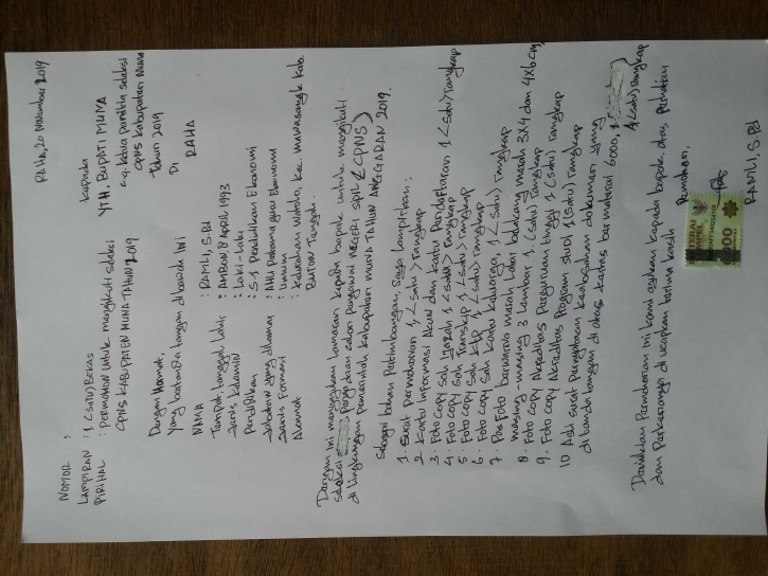 RAHA, 20 November 2019
NOMOR :
LAMPIRAN : 1 (SATU) BEKAS
PIRIHAL : PERMOHON UNTUK mengikuti seleksi
CPNS KABUPATEN MUNA TAHUN 2019
Kepada
YTH. BUPATI MUNA
c.q. Ketua Panitia seleksi
CPNS Kabupaten Muna
Tahun 2019
Di
RAHA
Dengan Hormat,
Yang bertanda tangan dibawah ini
NAMA : RAMLI, S.Pd
Tempat, tanggal lahir : AMBON 8 April 1993
Jenis Kelamin : Laki-Laki
Pendidikan : S-1 Pendidikan Ekonomi
Jabatan yang dilamar : Ahli Pertama guru Ekonomi
Jenis Formasi : Umum
Alamat : Kelurahan Watolo, Kec. Mawasangka Kab.
Buton Tengah.
Dengan ini mengajukan lamaran kepada bapak untuk mengikuti
seleksi pengadaan calon pegawai NEGERI SIPIL (CPNS)
di lingkunggan pemerintah kabupaten MUNA TAHUN ANGGARAN 2019.
Sebagai bahan Pertimbangan, saya lampirkan :
1. Surat Permohonan 1 <satu> Rangkap
2. Kartu informasi Akun dan Kartu Pendaftaran 1 <satu> Rangkap
3. Foto copy Sah Ijazah 1 <satu> Rangkap
4. Foto copy Sah Transkip 1 <satu> Rangkap
5. Foto copy Sah KTP 1 <satu> Rangkap
6. Foto copy Sah Kartu Keluarga, 1 <satu> Rangkap
7. Pas Foto berwarna merah latar belakang merah 3X4 dan 4X6 cm
masing-masing 3 lembar 1 (satu) Rangkap
8. Foto copy Akreditas Perguruan tinggi 1 (satu) rangkap
9. Foto copy Akreditas Program studi 1 (satu) Rangkap
10 Asli surat Pernyataan Keabsahan dokumen yang
di tanda tanggan di atas kertas bermaterai 6000, 1
1 (satu) rangkap
Demikian Permohonan ini kami ajukan kepada bapak, atas Perhatian
dan Perkenannya di ucapkan terima kasih
Pemohon,
6000
RAMLI, S.Pd